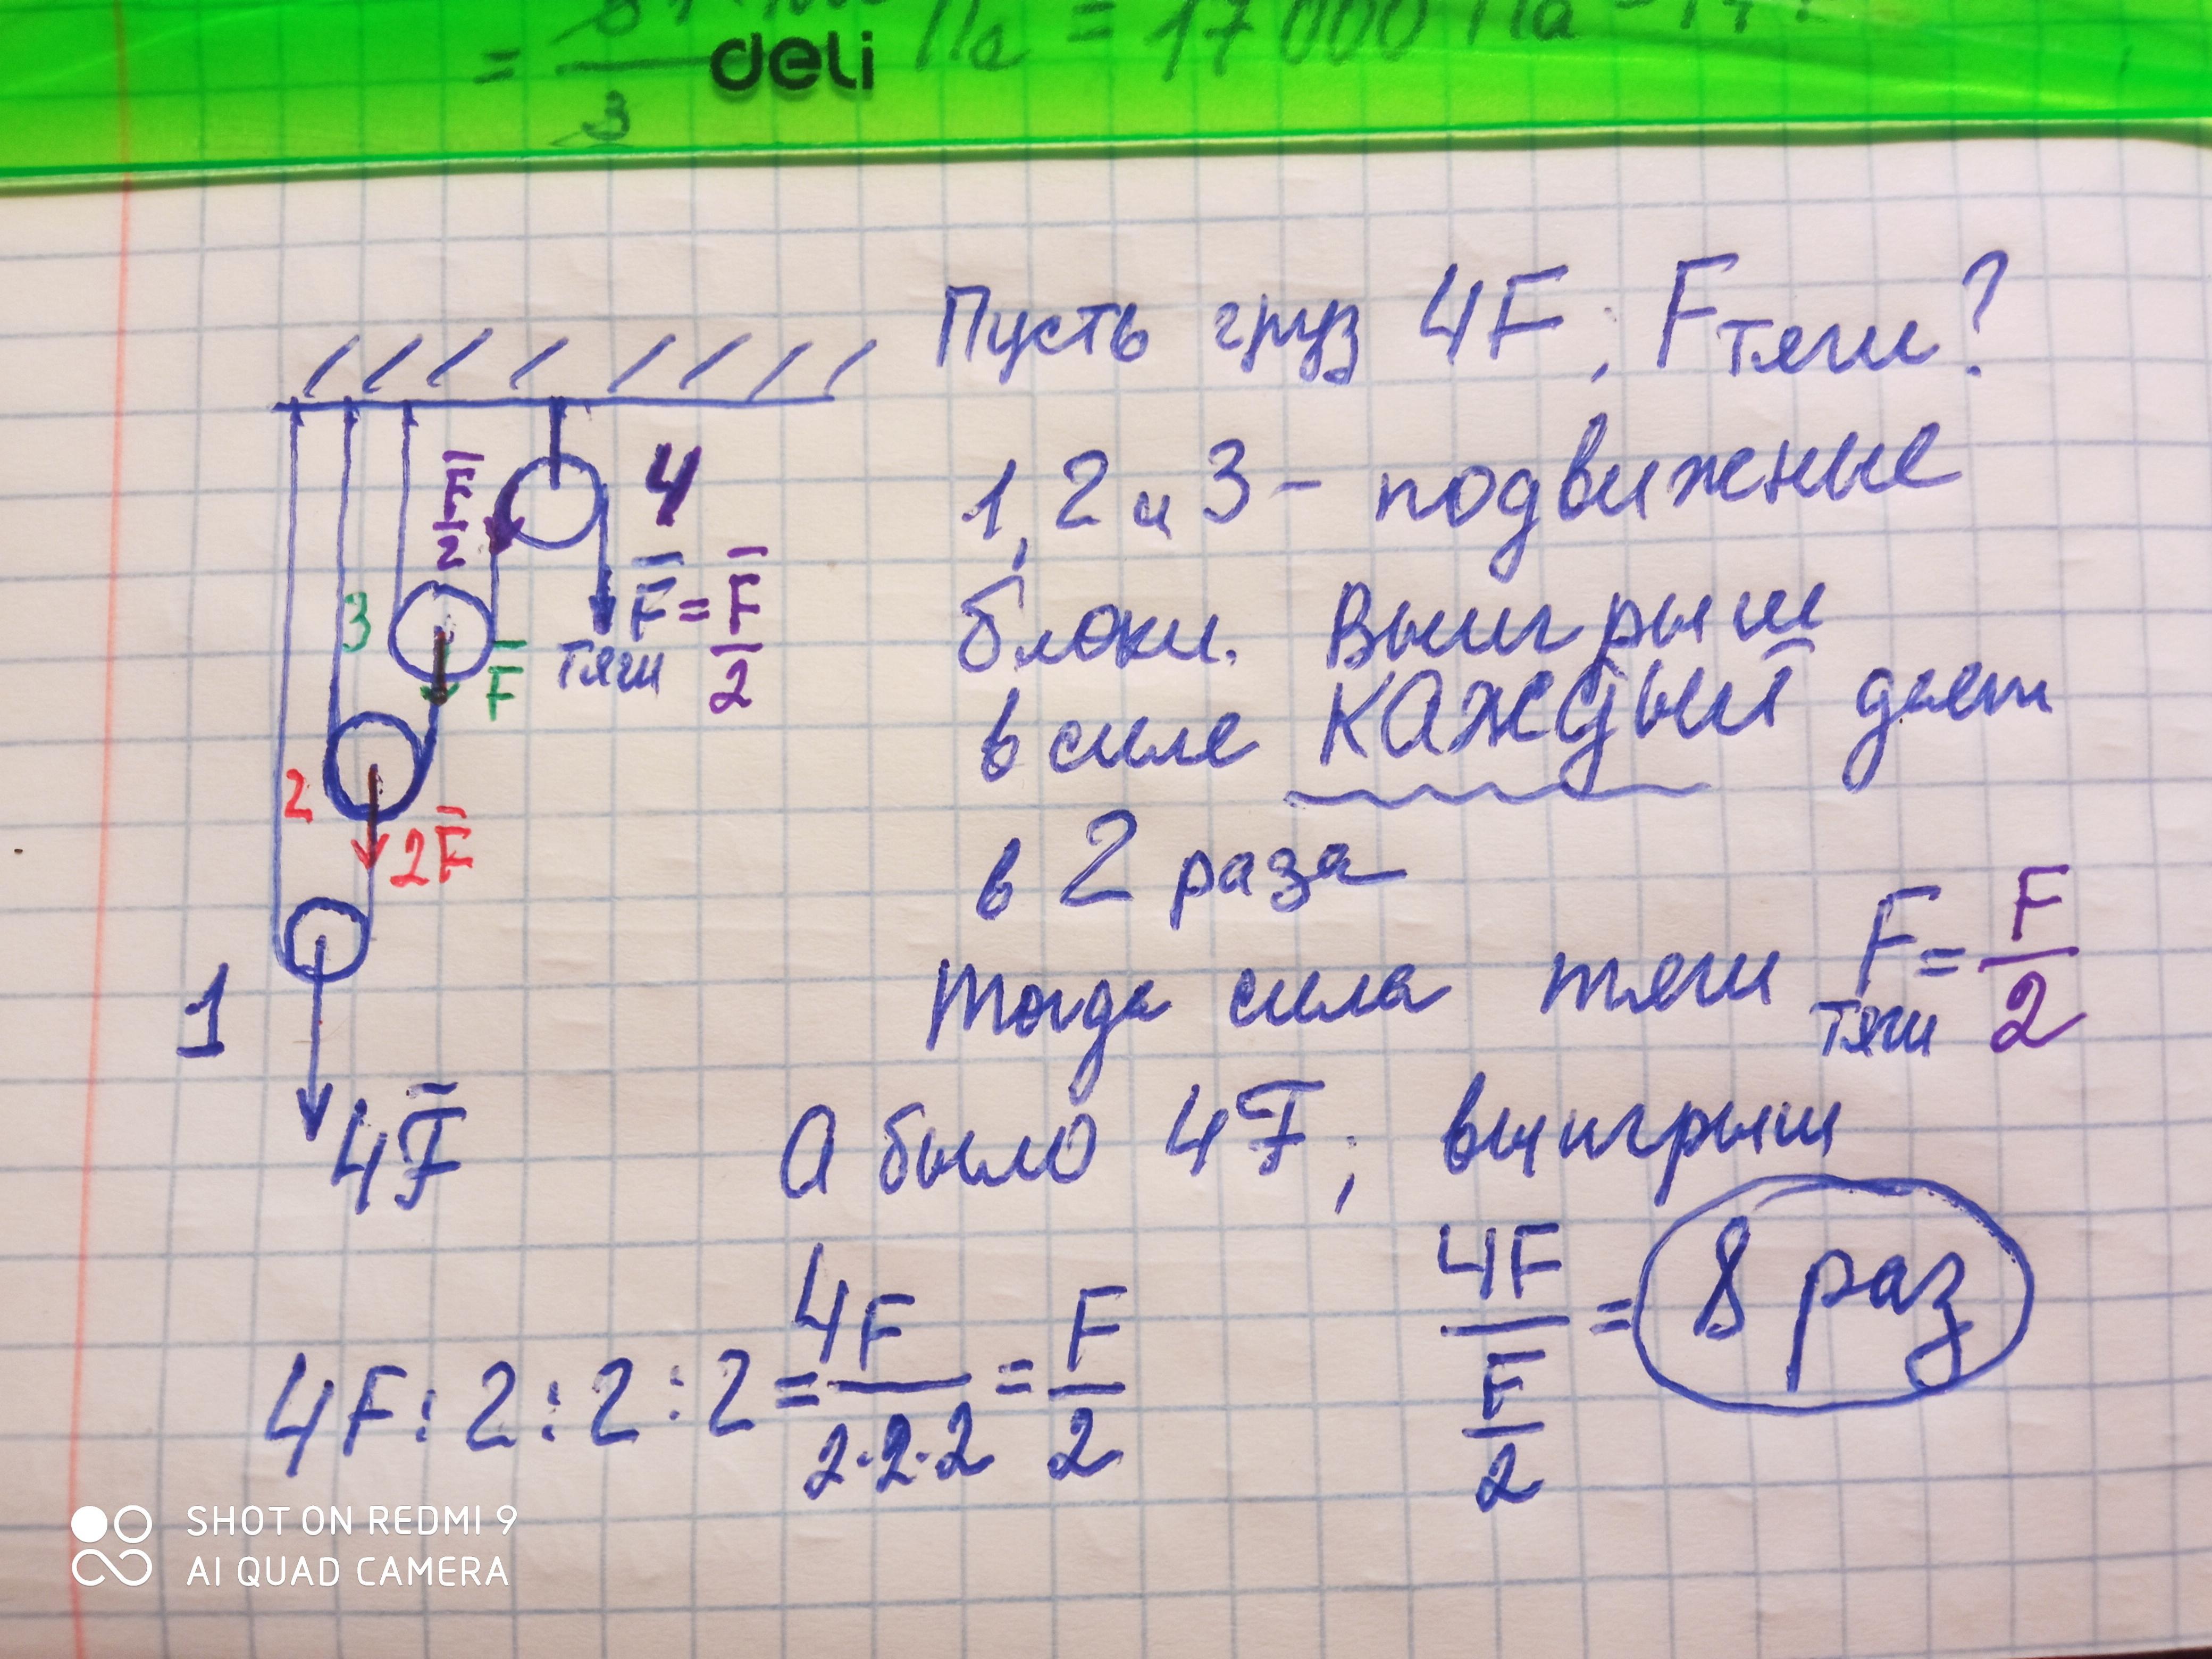 deli Па = 17 000 Па
=
3
Пусть груз 4F ; Fтяги?
1, 2 и 3 - подвижные
блоки. Выигрыш
в силе каждый дает
в 2 раза
Тогда сила тяги Fтяги = F/2
А было 4F ; выигрыш
4F : 2 : 2 : 2 = 4F/2·2·2 = F/2
4F/F/2 = 8 раз
F/2
4
Fтяги = F/2
3
F
2
2F
1
4F
SHOT ON REDMI 9
AI QUAD CAMERA